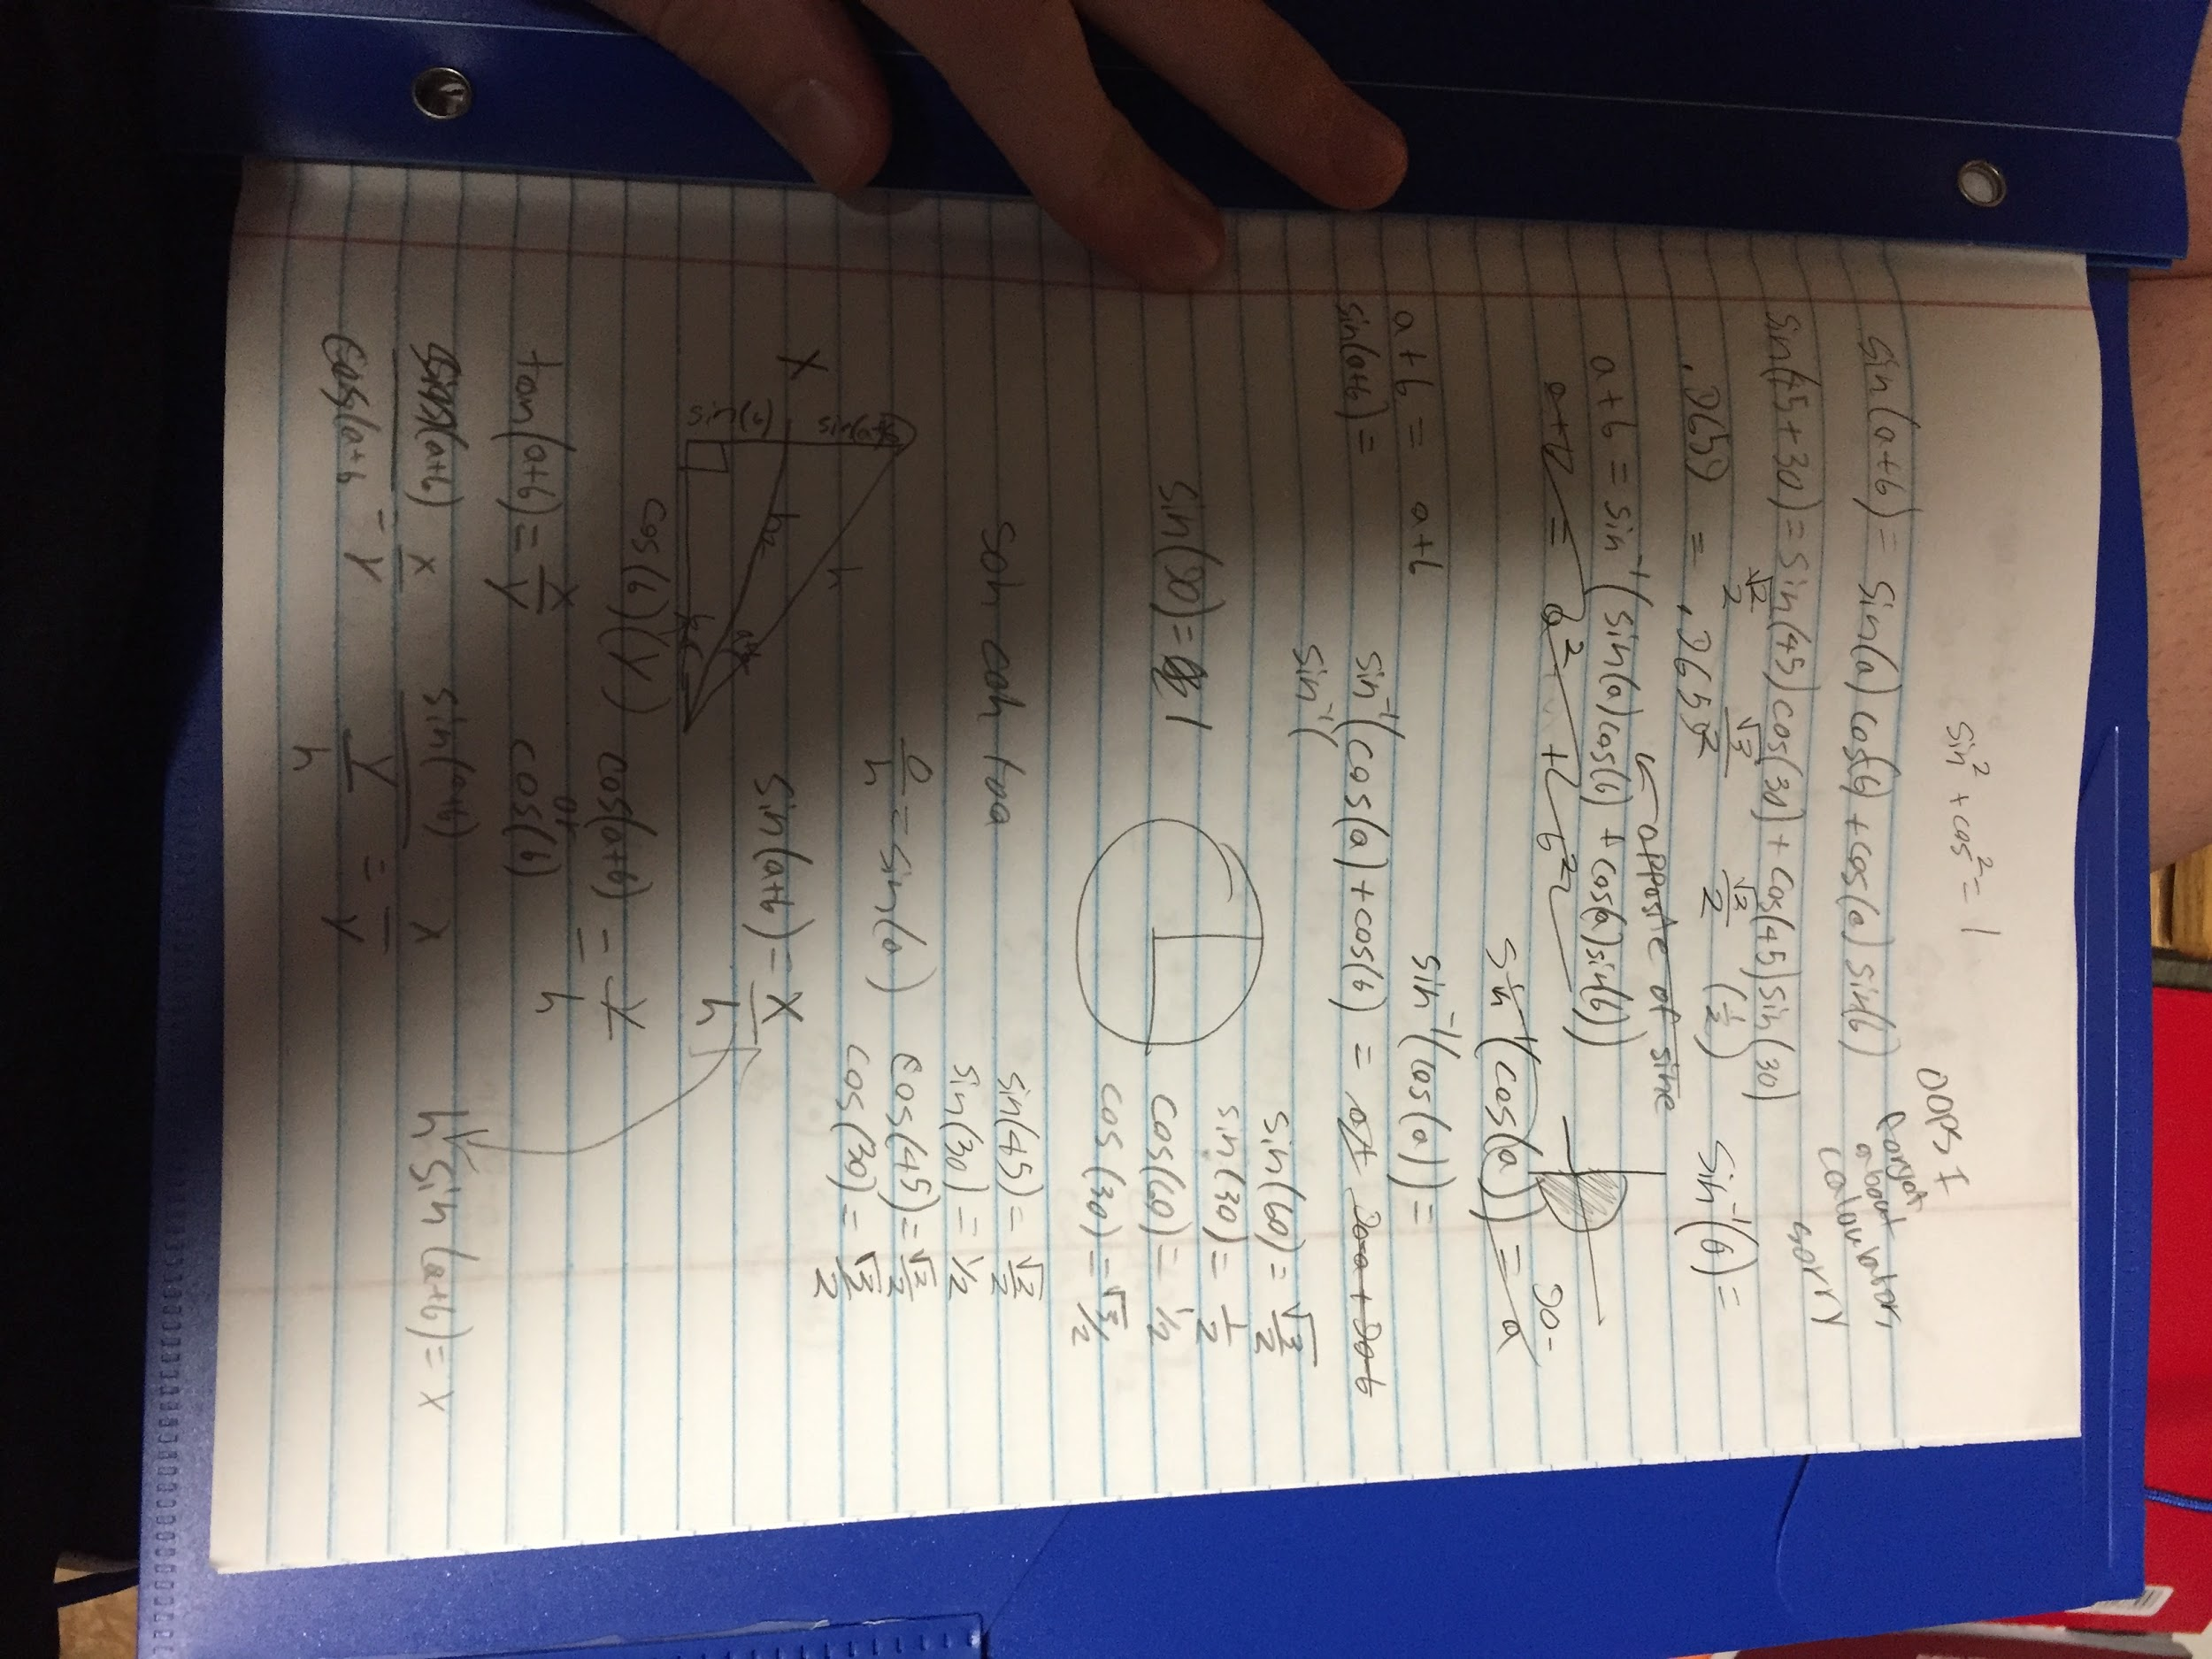 sin² + cos² = 1
OOPS I
forgot
about
calculator,
sorry
sin(a+b) = sin(a) cos(b) + cos(a) sin(b)
sin(45+30) = sin(45) cos(30) + cos(45) sin(30)
√2/2 √3/2 √2/2 (1/2)
.9659 = .9659
sin⁻¹(b) =
opposite of sine
a+b = sin⁻¹(sin(a)cos(b) + cos(a)sin(b))
90-
sin⁻¹(cos(a)) = a
a+b = a+b
sin⁻¹(cos(a)) =
sin(a+b) =
sin⁻¹(cos(a) + cos(b) = 90-a+90-b
sin⁻¹(
sin(60) = √3/2
sin(30) = 1/2
cos(60) = 1/2
cos(30) = √3/2
sin(90) = 1
soh cah toa
sin(45) = √2/2
sin(30) = 1/2
cos(45) = √2/2
cos(30) = √3/2
o/h = sin(a)
X
sin(b)
h
h₂
sin(a+b) = X/h
cos(b)(Y)
cos(a+b) = Y/h
or
cos(b)
tan(a+b) = X/Y
h sin(a+b) = x
sin(a+b) x
cos(a+b) = Y
Y/h